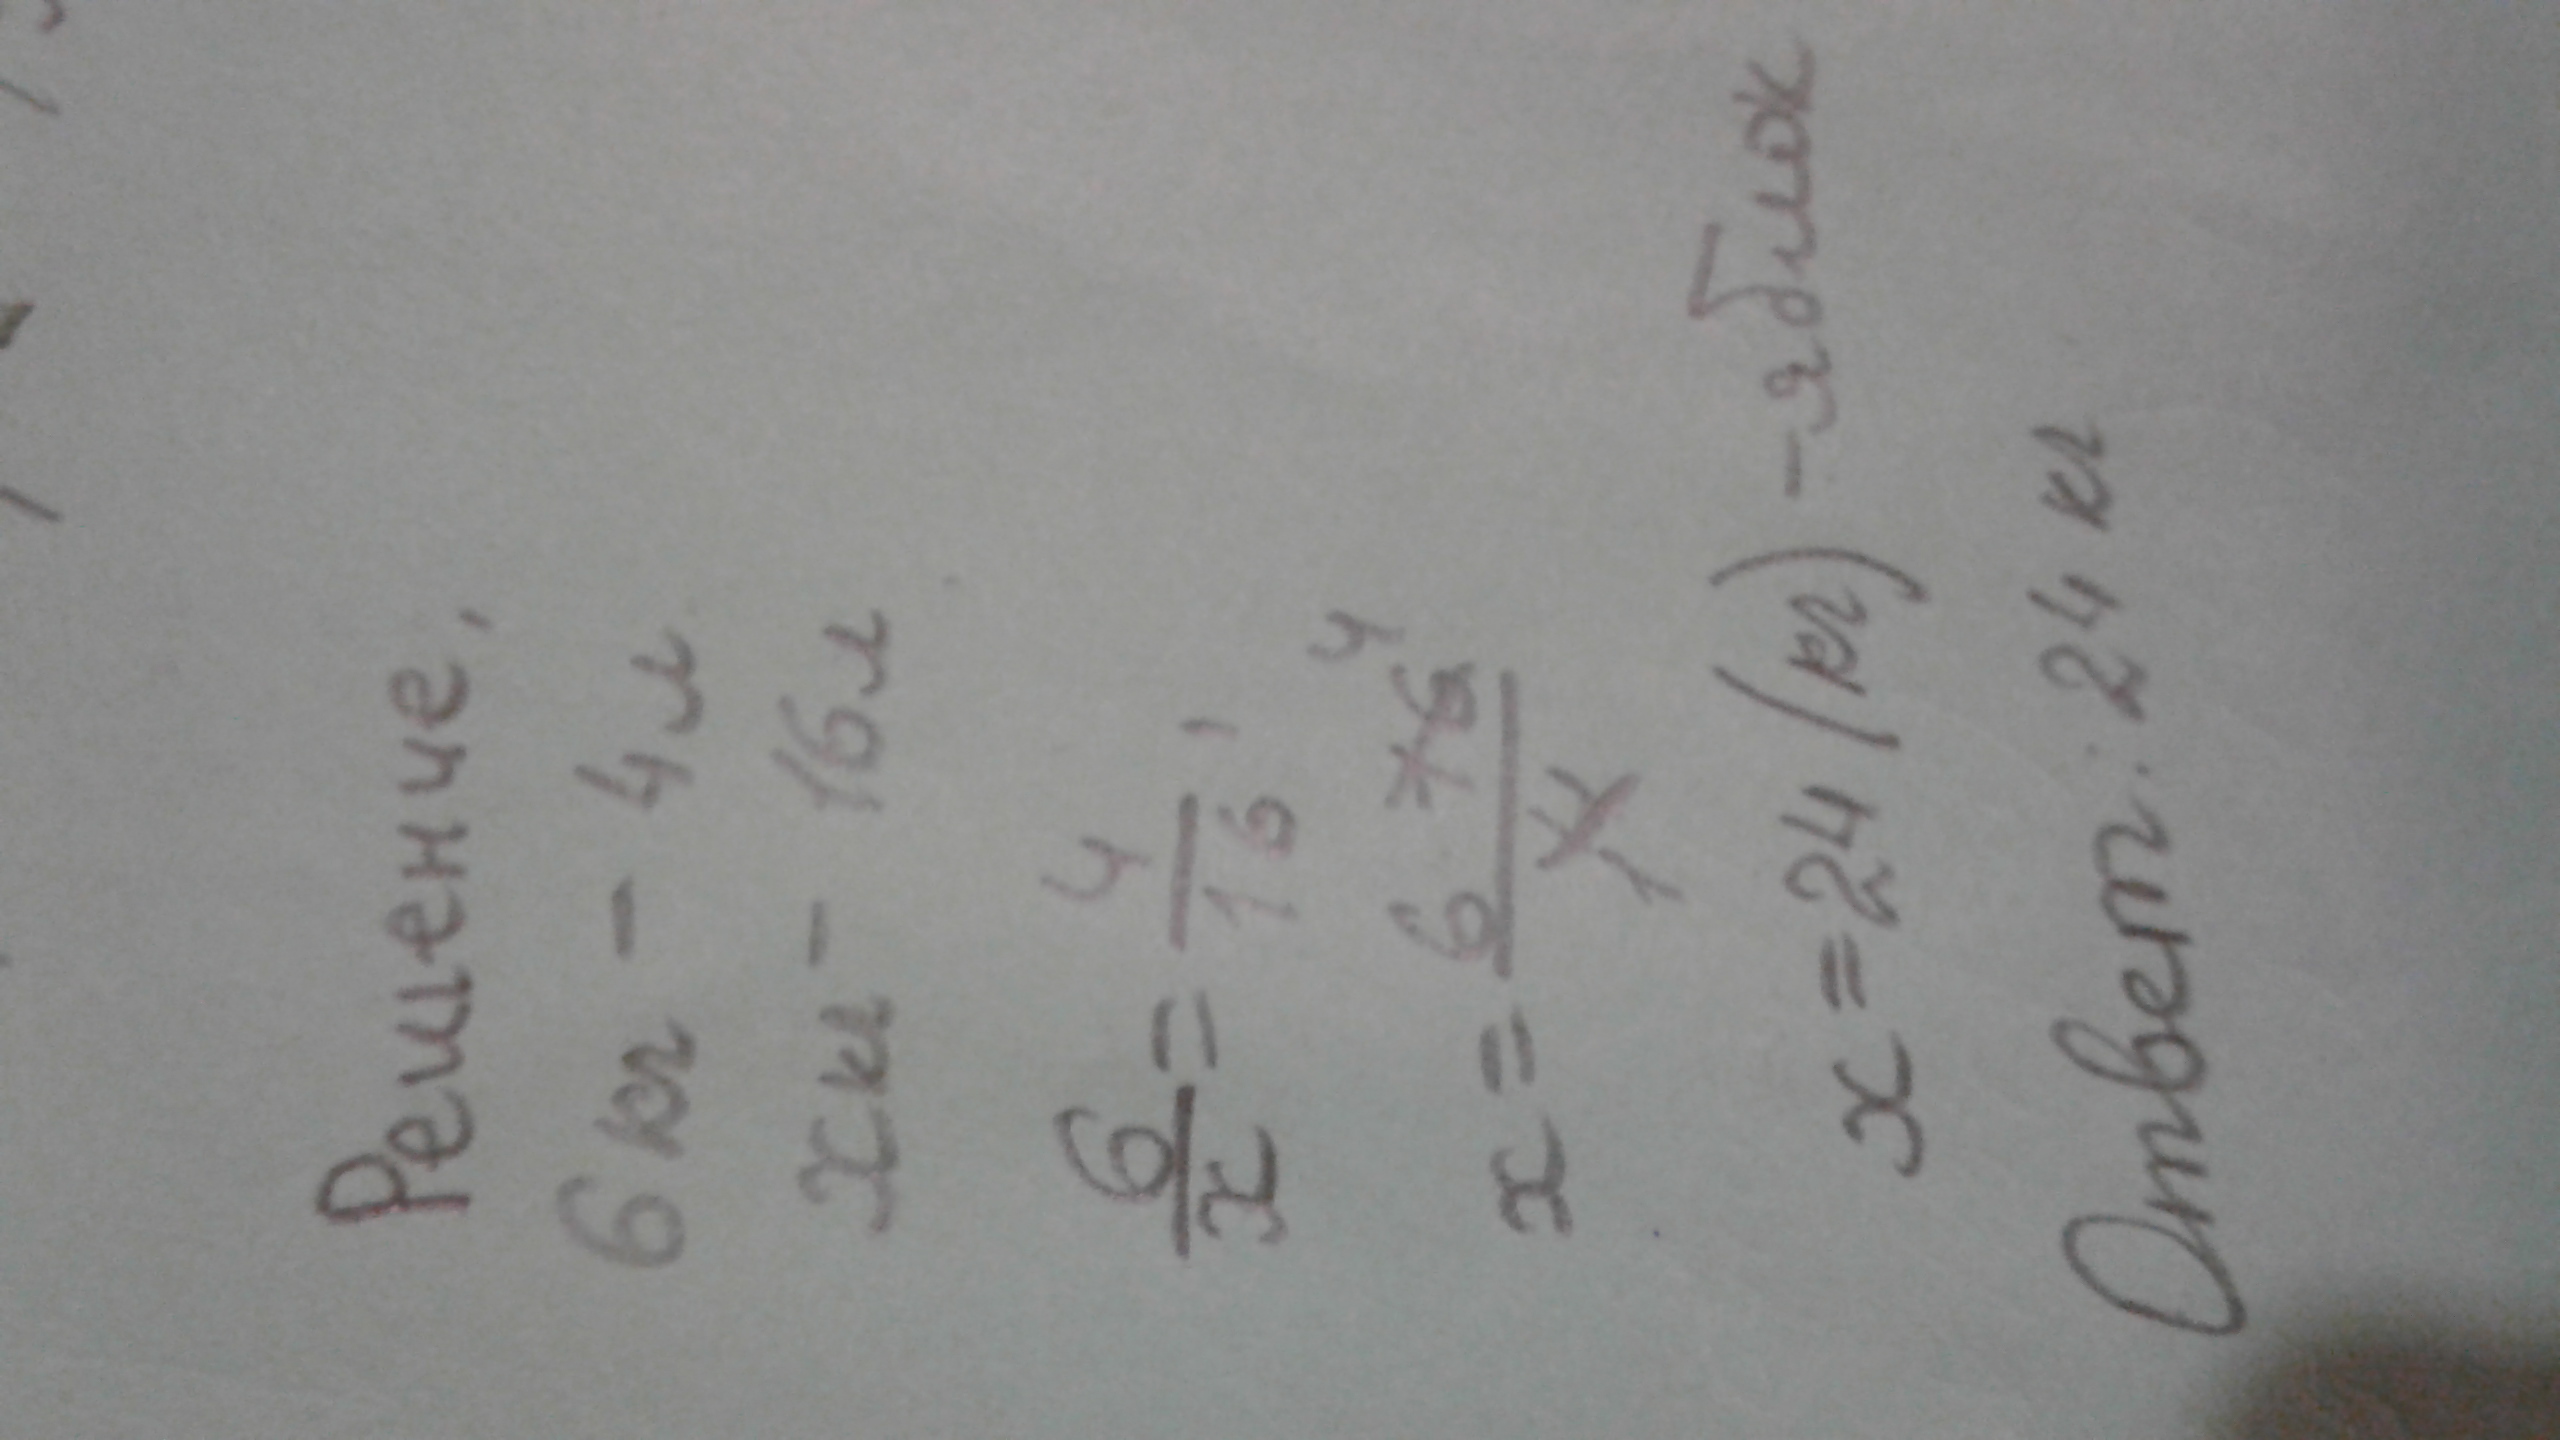 Решение.
6 кг - 4 л
x кг - 16 л
6/x = 4/16
x = 6 · 16 4 / 4 1
x = 24 (кг) - яблок
Ответ: 24 кг